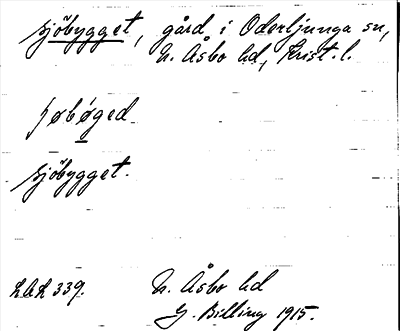 sjöbygget, gård i Oderljunga sn,
N. Åsbo hd, Krist. l.
ʃøbøged
sjöbygget.
LAL 339. N. Åsbo hd
G. Billing 1915.